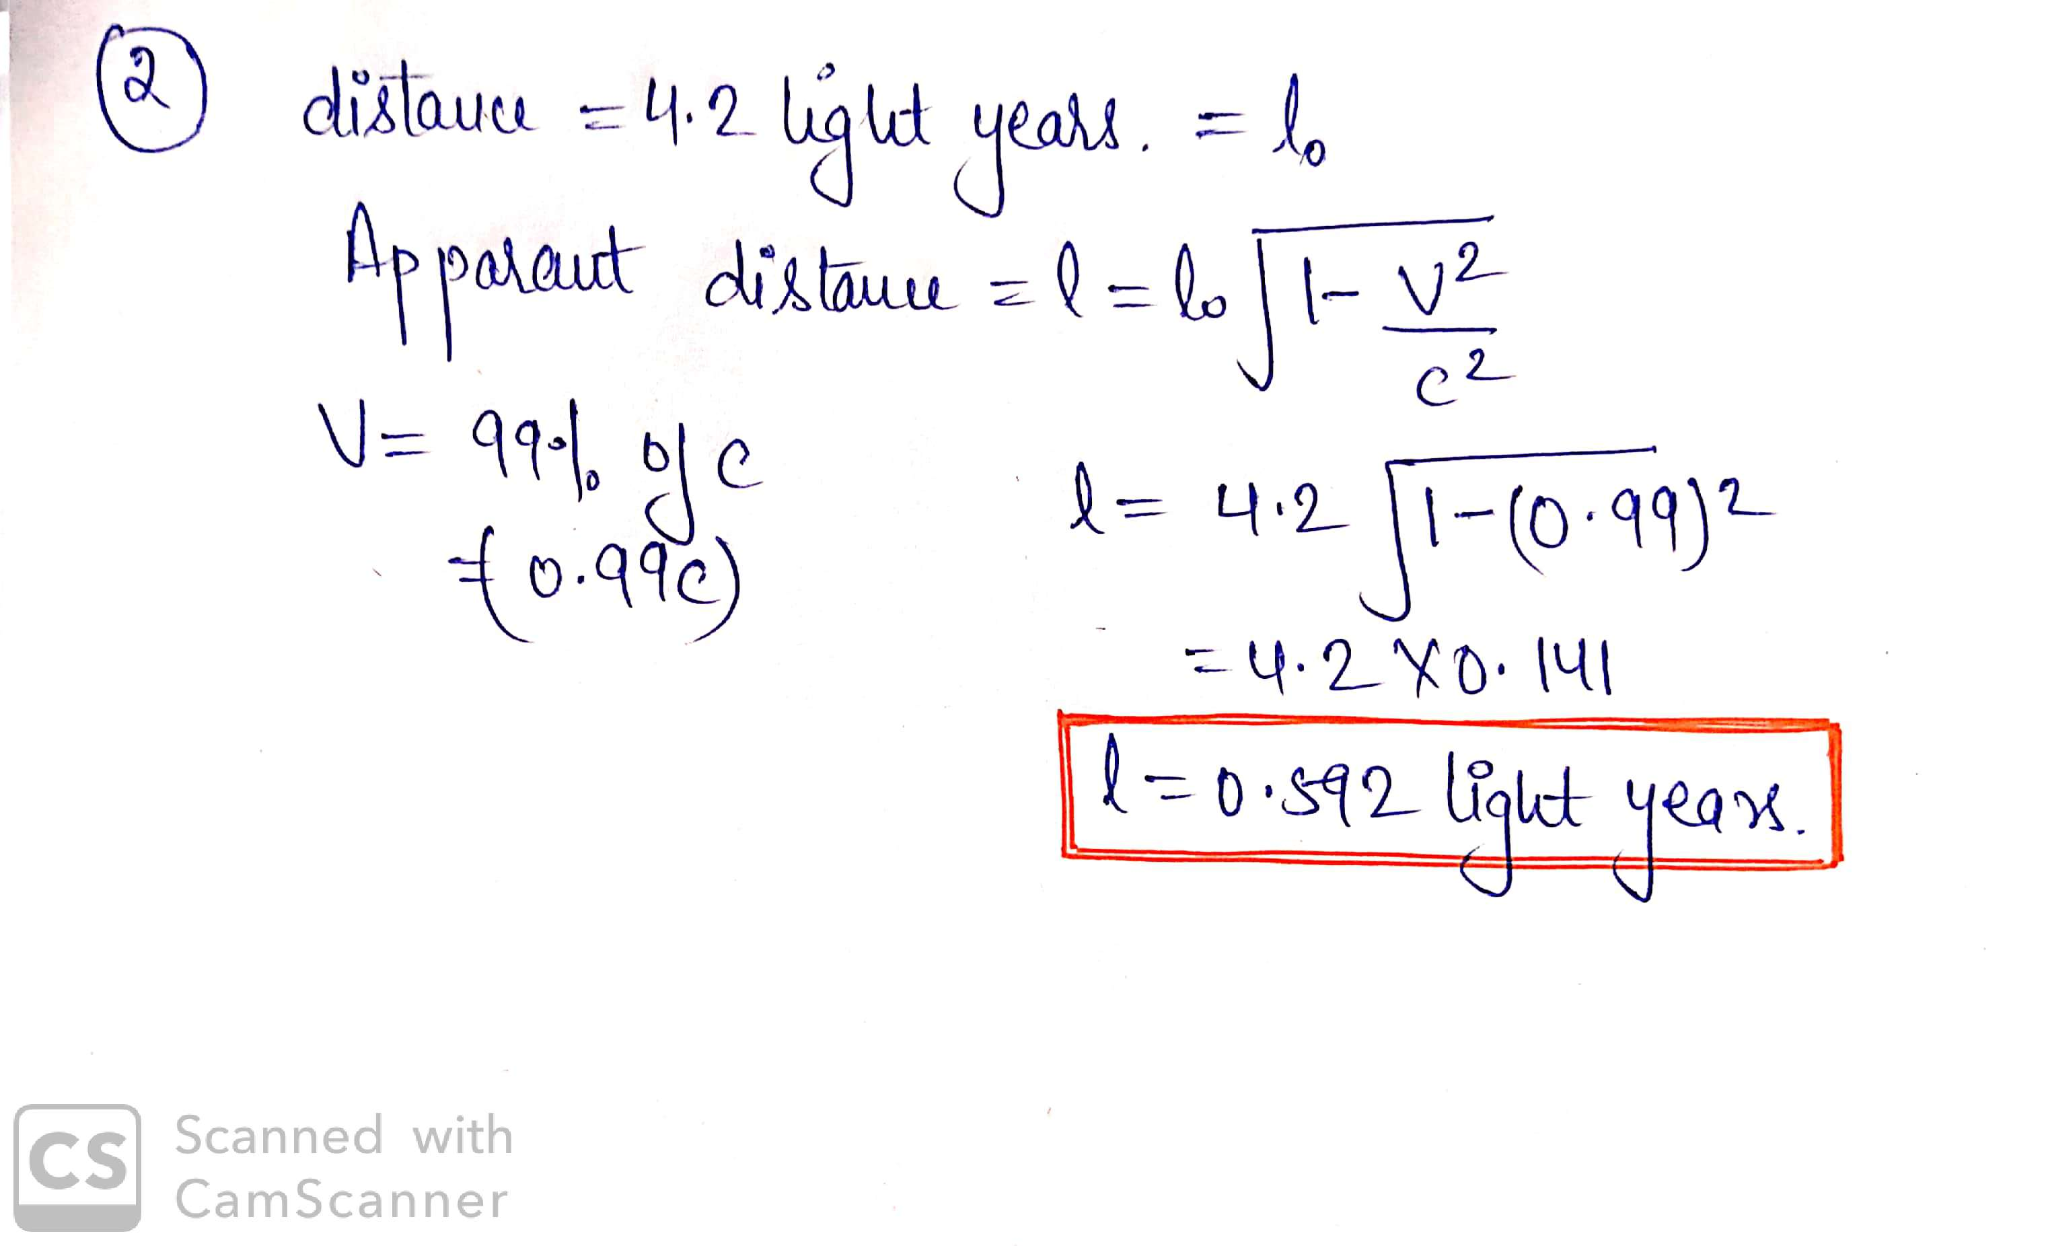 2 distance = 4.2 light years. = l₀
Apparant distance = l = l₀ √1 - v²/c²
V = 99% of c
= (0.99c)
l = 4.2 √1-(0.99)²
= 4.2 X 0.141
l = 0.592 light years.
CS Scanned with
CamScanner